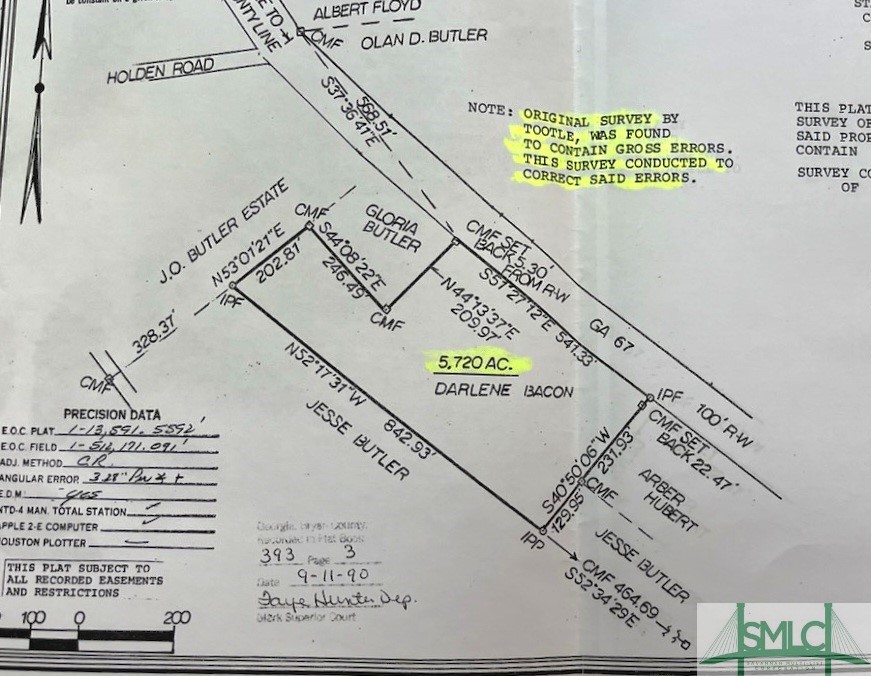 ALBERT FLOYD
CMF
OLAN D. BUTLER
HOLDEN ROAD
568.51'
S37°36'41"E
NOTE: ORIGINAL SURVEY BY
TOOTLE, WAS FOUND
TO CONTAIN GROSS ERRORS.
THIS SURVEY CONDUCTED TO
CORRECT SAID ERRORS.
THIS PLAT
SURVEY OF
SAID PROP
CONTAIN
SURVEY CO
OF
J.O. BUTLER ESTATE
CMF
GLORIA
BUTLER
N53°01'21"E
202.81'
S44°08'22"E
246.49'
IPF
CMF
CMF SET
BACK 5.30'
FROM R-W
N44°13'37"E
209.97'
S51°27'12"E 541.33'
GA 67
328.37'
CMF
5.720 AC.
DARLENE BACON
N52°17'31"W 842.93'
JESSE BUTLER
IPF
100' R-W
CMF SET
BACK 22.47'
S40°50'06"W
231.93'
CMF
129.95'
ARBER
HUBERT
IPP
JESSE BUTLER
CMF 464.69
S52°34'29"E
PRECISION DATA
E.O.C. PLAT 1-13,591.5592'
E.O.C. FIELD 1-512,171.091'
ADJ. METHOD C.R.
ANGULAR ERROR
E.D.M. yes
NTD-4 MAN. TOTAL STATION
APPLE 2-E COMPUTER
HOUSTON PLOTTER
THIS PLAT SUBJECT TO
ALL RECORDED EASEMENTS
AND RESTRICTIONS
Georgia, Bryan County.
Recorded in Plat Book
393 Page 3
Date 9-11-90
Faye Hunter Dep.
Clerk Superior Court
100 0 200
SMLC